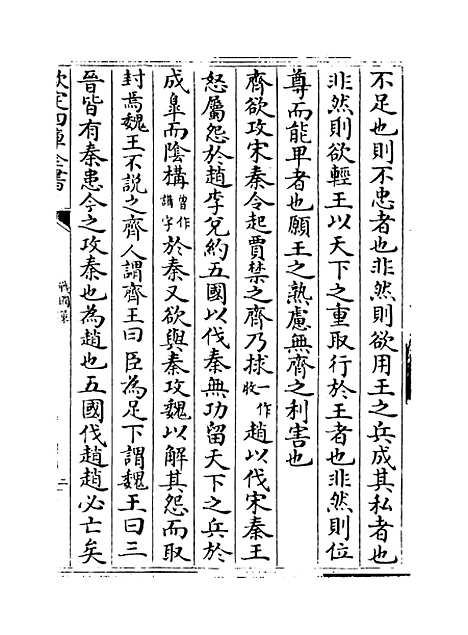 不足也則不忠者也非然則欲用王之兵成其私者也
非然則欲輕王以天下之重取行於王者也非然則位
尊而能卑者也願王之熟慮無齊之利害也
齊欲攻宋秦令起賈禁之齊乃捄一作收趙以伐宋秦王
怒屬怨於趙李兌約五國以伐秦無功留天下之兵於
成臯而陰構曾作講字於秦又欲與秦攻魏以解其怨而取
封焉魏王不說之齊人謂齊王曰臣為足下謂魏王曰三
晉皆有秦患今之攻秦也為趙也五國伐趙趙必亡矣
欽定四庫全書
戰國策
二